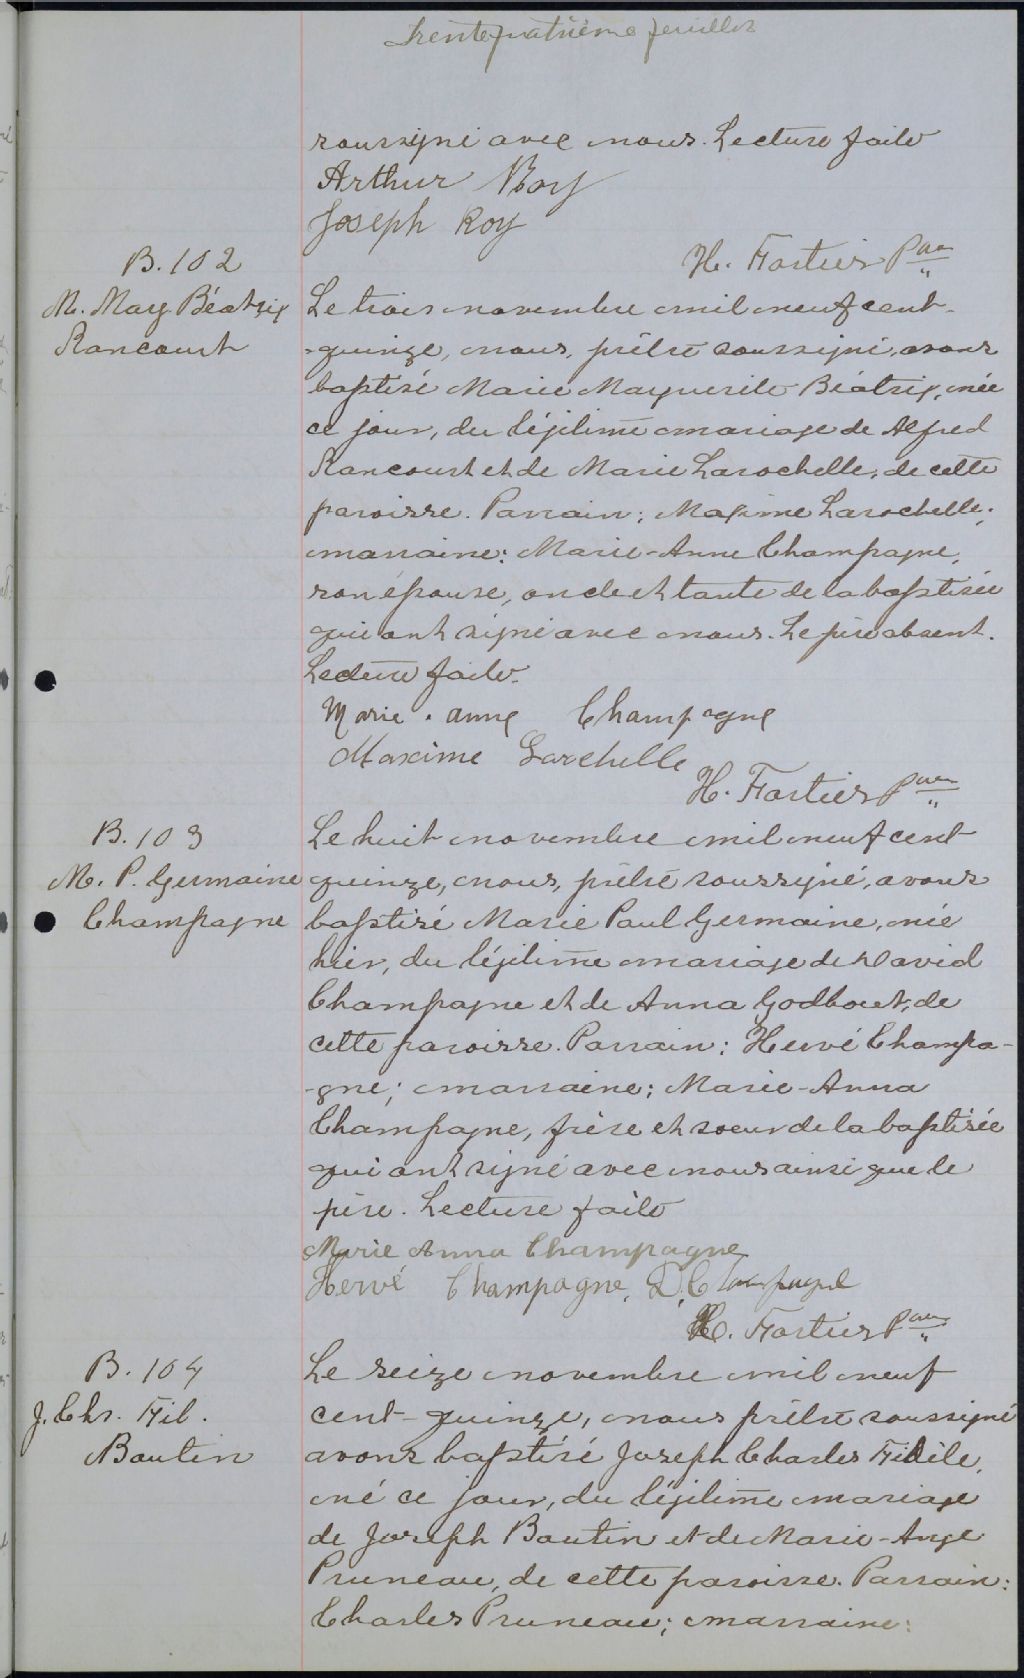 Trente quatrième feuillet
soussigné avec nous. Lecture faite
Arthur Roy
Joseph Roy
H. Fortier Ptre
B. 102
M. Marg. Béatrix
Rancourt
Le trois novembre mil neuf cent-
-quinze, nous, prêtre soussigné, avons
baptisé Marie Marguerite Béatrix, née
ce jour, du légitime mariage de Alfred
Rancourt et de Marie Larochelle, de cette
paroisse. Parrain: Maxime Larochelle;
marraine: Marie-Anne Champagne,
son épouse, oncle et tante de la baptisée
qui ont signé avec nous. Le père absent.
Lecture faite.
Marie. anne Champagne
Maxime Larchelle
H. Fortier
B. 103
M. P. Germaine
Champagne
Le huit novembre mil neuf cent
quinze, nous, prêtre soussigné, avons
baptisé Marie Paul Germaine, née
hier, du légitime mariage de David
Champagne et de Anna Godbout, de
cette paroisse. Parrain: Hervé Champa-
-gne; marraine: Marie-Anna
Champagne, frère et soeur de la baptisée
qui ont signé avec nous ainsi que le
père. Lecture faite
Marie Anna Champagne
Hervé Champagne, D. Champagne
H. Fortier
B. 104
J. Chs. Fid.
Boutin
Le seize novembre mil neuf
cent-quinze, nous prêtre soussigné
avons baptisé Joseph Charles Fidèle,
né ce jour, du légitime mariage
de Joseph Boutin et de Marie-Ange
Pruneau, de cette paroisse. Parrain:
Charles Pruneau; marraine: